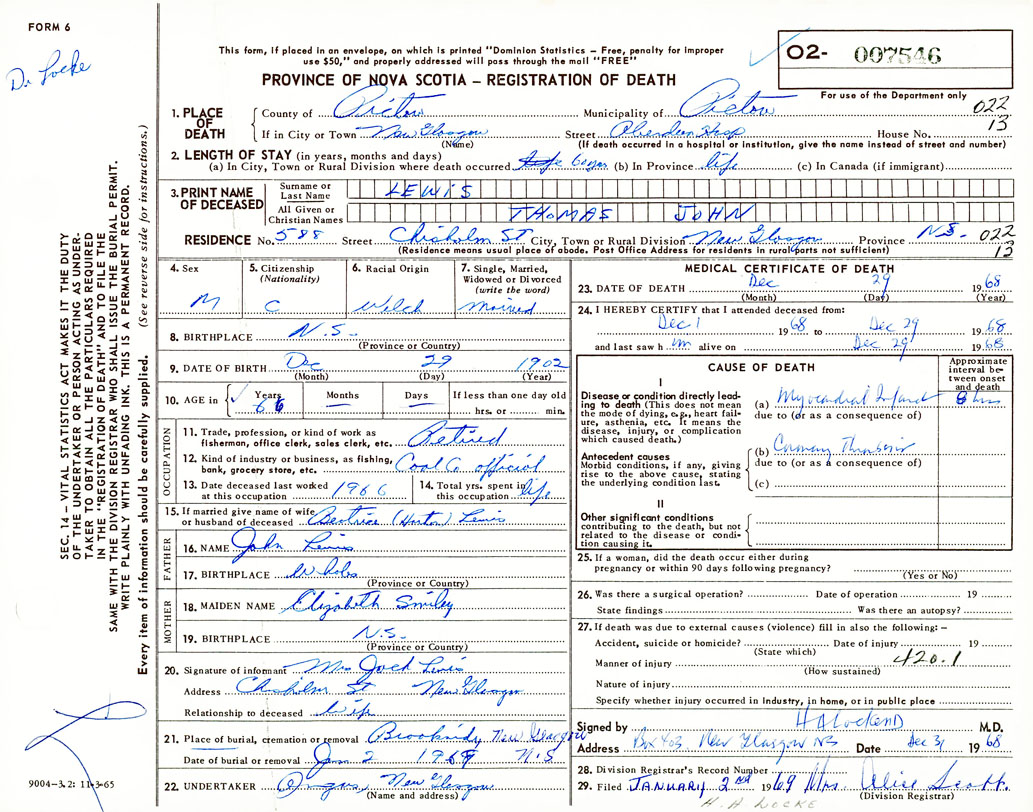 FORM 6
Dr Locke
This form, if placed in an envelope, on which is printed "Dominion Statistics – Free, penalty for improper
use $50," and properly addressed will pass through the mail "FREE"
PROVINCE OF NOVA SCOTIA – REGISTRATION OF DEATH
02- 007546
For use of the Department only
022
13
1. PLACE OF DEATH
County of Pictou Municipality of Pictou
If in City or Town New Glasgow Street Aberdeen Hosp House No.
(Name) (If death occurred in a hospital or institution, give the name instead of street and number)
2. LENGTH OF STAY (in years, months and days)
(a) In City, Town or Rural Division where death occurred (b) In Province life (c) In Canada (if immigrant)
3. PRINT NAME OF DECEASED
Surname or Last Name LEWIS
All Given or Christian Names THOMAS JOHN
RESIDENCE No. 588 Street Chisholm St City, Town or Rural Division New Glasgow Province N.S. 022
(Residence means usual place of abode. Post Office Address for residents in rural parts not sufficient) 13
4. Sex M
5. Citizenship (Nationality) C
6. Racial Origin Welch
7. Single, Married, Widowed or Divorced (write the word) Married
8. BIRTHPLACE N.S.
(Province or Country)
9. DATE OF BIRTH Dec 29 1902
(Month) (Day) (Year)
10. AGE in Years Months Days If less than one day old
66 – – hrs. or min.
OCCUPATION
11. Trade, profession, or kind of work as fisherman, office clerk, sales clerk, etc. Retired
12. Kind of industry or business, as fishing, bank, grocery store, etc. Coal Co official
13. Date deceased last worked at this occupation 1966
14. Total yrs. spent in this occupation life
15. If married give name of wife or husband of deceased Beatrice (Horton) Lewis
FATHER
16. NAME John Lewis
17. BIRTHPLACE Wales
(Province or Country)
MOTHER
18. MAIDEN NAME Elizabeth Smiley
19. BIRTHPLACE N.S.
(Province or Country)
20. Signature of informant Mrs Lewis
Address Chisholm St New Glasgow
Relationship to deceased wife
21. Place of burial, cremation or removal New Glasgow
Date of burial or removal Jan 2 1969 N.S
22. UNDERTAKER Angus, New Glasgow
(Name and address)
MEDICAL CERTIFICATE OF DEATH
23. DATE OF DEATH Dec 29 1968
(Month) (Day) (Year)
24. I HEREBY CERTIFY that I attended deceased from:
Dec 1 1968 to Dec 29 1968
and last saw him alive on Dec 29 1968
CAUSE OF DEATH
Approximate interval between onset and death
I
Disease or condition directly leading to death (This does not mean the mode of dying, e.g., heart failure, asthenia, etc. It means the disease, injury, or complication which caused death.)
(a) Myocardial Infarct 8 hrs
due to (or as a consequence of)
Antecedent causes
Morbid conditions, if any, giving rise to the above cause, stating the underlying condition last.
(b) Coronary Thrombosis
due to (or as a consequence of)
(c)
II
Other significant conditions
contributing to the death, but not related to the disease or condition causing it.
25. If a woman, did the death occur either during
pregnancy or within 90 days following pregnancy?
(Yes or No)
26. Was there a surgical operation? Date of operation 19
State findings Was there an autopsy?
27. If death was due to external causes (violence) fill in also the following: –
Accident, suicide or homicide? Date of injury 19
(State which)
Manner of injury 420.1
(How sustained)
Nature of injury
Specify whether injury occurred in industry, in home, or in public place
Signed by H A Locke MD M.D.
Address Box 403 New Glasgow NS Date Dec 31 1968
28. Division Registrar's Record Number
29. Filed JANUARY 2nd 1969 Mrs. Alice Scott
(Division Registrar)
H. A. LOCKE
SEC. 14 – VITAL STATISTICS ACT MAKES IT THE DUTY
OF THE UNDERTAKER OR PERSON ACTING AS UNDER-
TAKER TO OBTAIN ALL THE PARTICULARS REQUIRED
IN THE "REGISTRATION OF DEATH" AND TO FILE THE
SAME WITH THE DIVISION REGISTRAR WHO SHALL ISSUE THE BURIAL PERMIT.
WRITE PLAINLY WITH UNFADING INK. THIS IS A PERMANENT RECORD.
Every item of information should be carefully supplied. (See reverse side for instructions.)
9004-3.2: 11-3-65